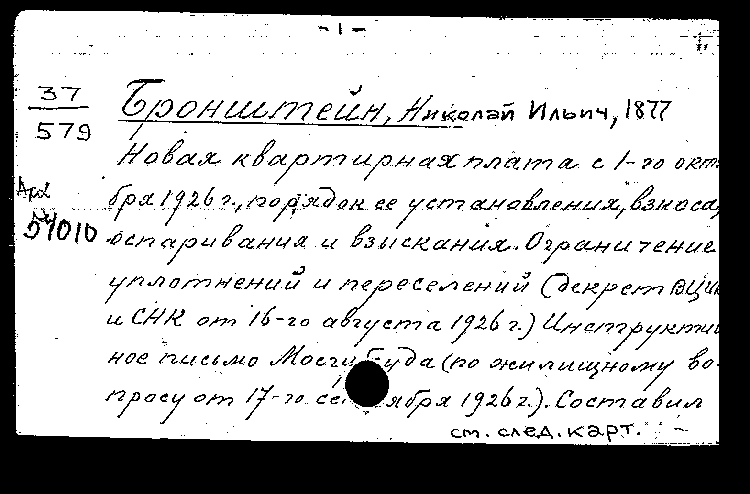 - 1 -
37
579
Бронштейн, Николай Ильич, 1877
Новая квартирная плата с 1-го октя
бря 1926 г., порядок ее установления, взноса,
Арх
54010
оспаривания и взыскания. Ограничение
уплотнений и переселений (декрет ВЦИК
и СНК от 16-го августа 1926 г.) Инструктив
ное письмо Мосгубсуда (по жилищному во-
просу от 17-го сентября 1926 г.). Составил
см. след. карт.